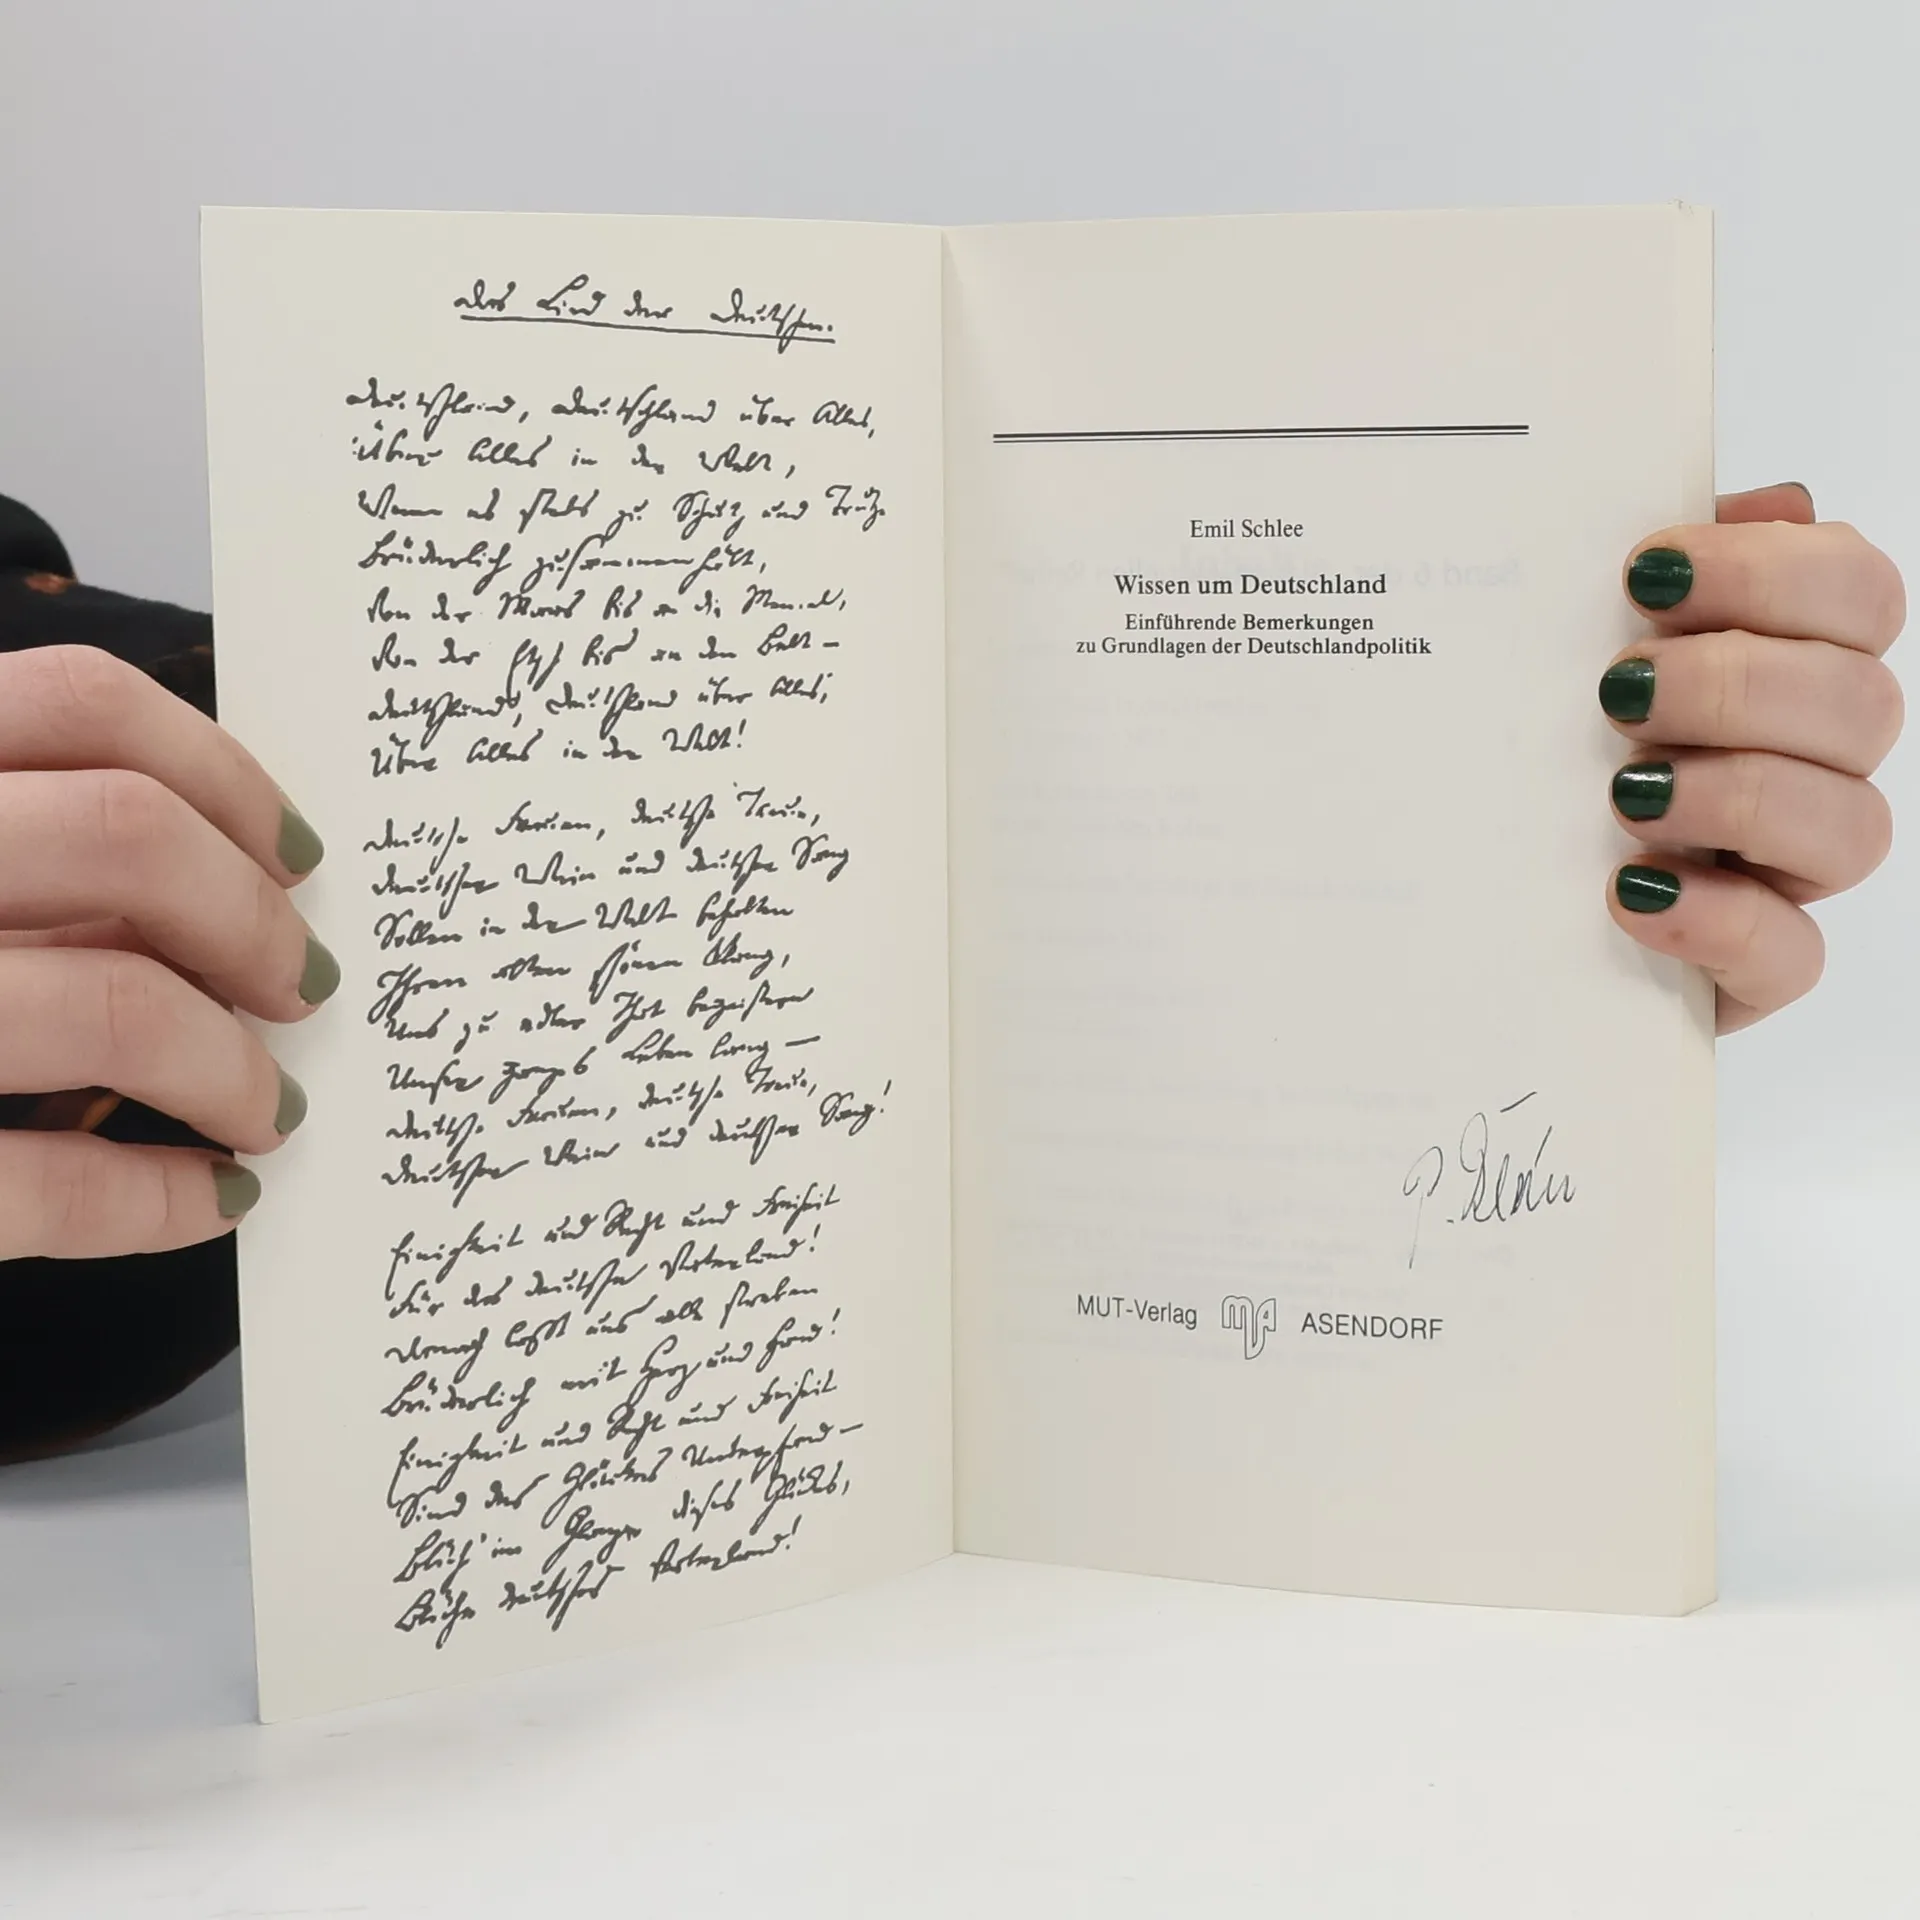 Das Lied der Deutschen.
Deutschland, Deutschland über Alles,
Über Alles in der Welt,
Wenn es stets zu Schutz und Trutze
Brüderlich zusammenhält,
Von der Maas bis an die Memel,
Von der Etsch bis an den Belt –
Deutschland, Deutschland über Alles,
Über Alles in der Welt!
Deutsche Frauen, deutsche Treue,
Deutscher Wein und deutscher Sang
Sollen in der Welt behalten
Ihren alten schönen Klang,
Uns zu edler That begeistern
Unser ganzes Leben lang –
Deutsche Frauen, deutsche Treue,
Deutscher Wein und deutscher Sang!
Einigkeit und Recht und Freiheit
Für das deutsche Vaterland!
Danach laßt uns alle streben
Brüderlich mit Herz und Hand!
Einigkeit und Recht und Freiheit
Sind des Glückes Unterpfand –
Blüh' im Glanze dieses Glückes,
Blühe deutsches Vaterland!
Emil Schlee
Wissen um Deutschland
Einführende Bemerkungen
zu Grundlagen der Deutschlandpolitik
MUT-Verlag MVA ASENDORF